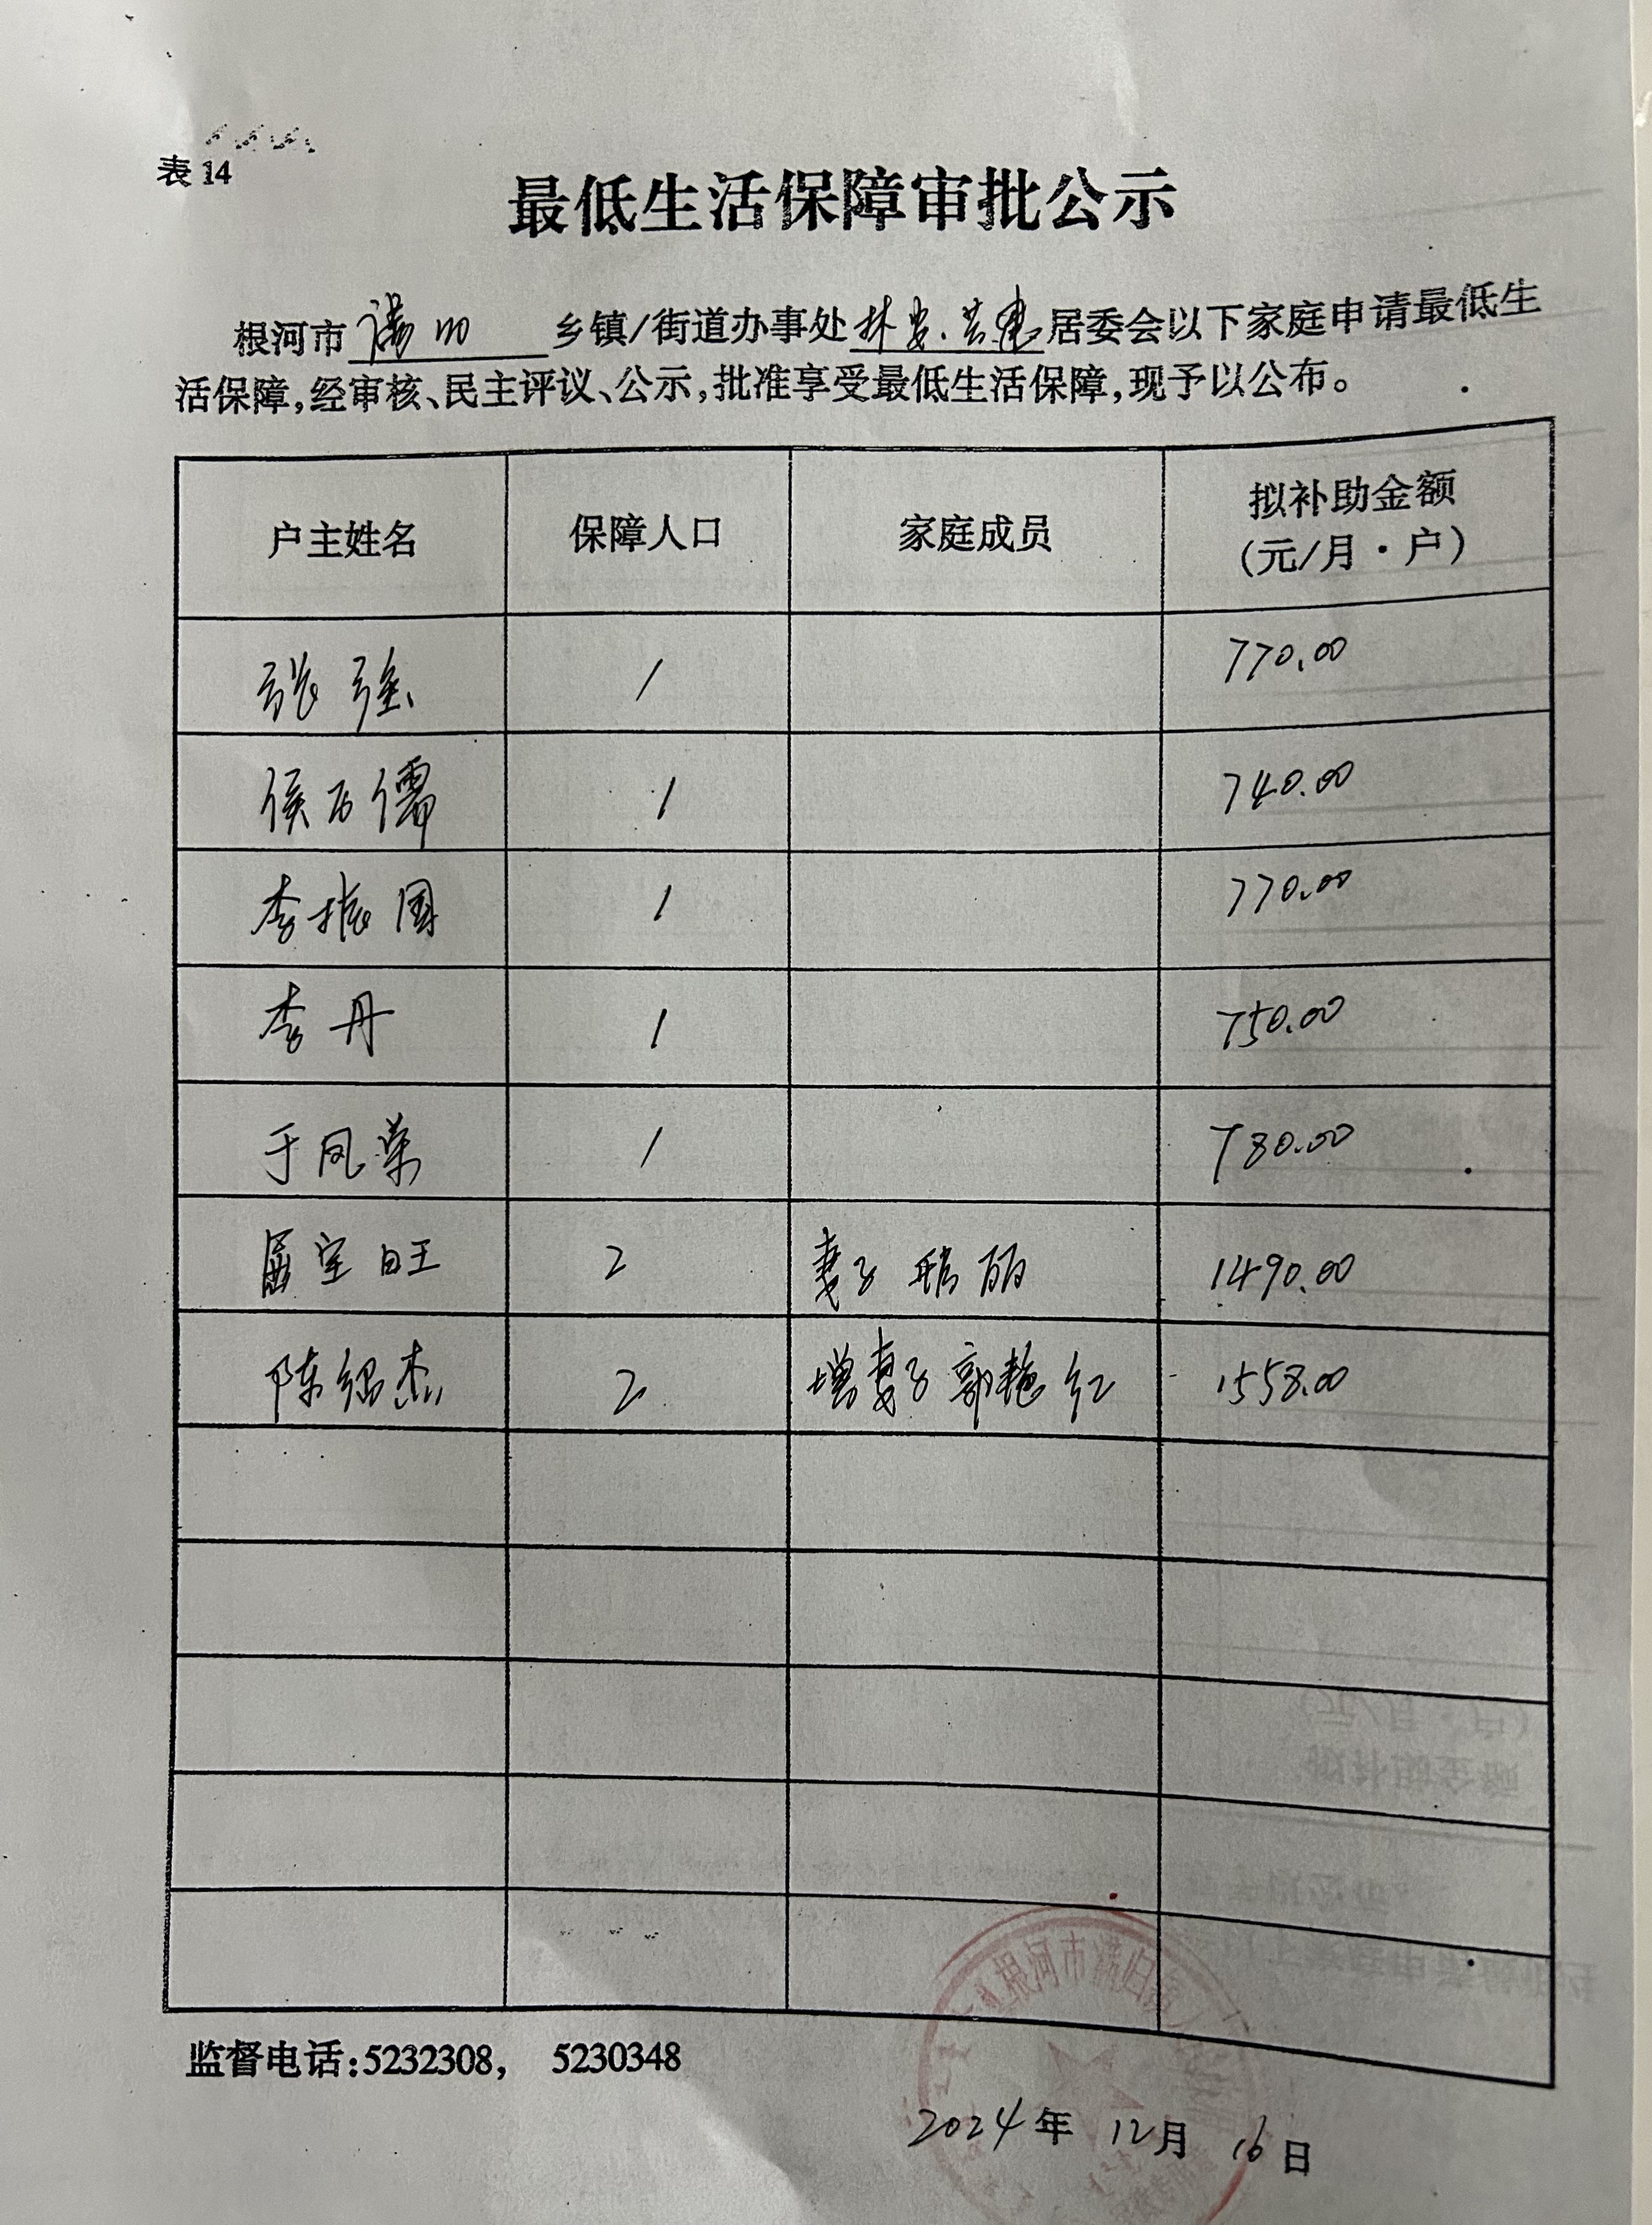 表14
最低生活保障审批公示
根河市 满归 乡镇/街道办事处 林安.共建 居委会以下家庭申请最低生
活保障,经审核、民主评议、公示,批准享受最低生活保障,现予以公布。
户主姓名 保障人口 家庭成员 拟补助金额
(元/月·户)
张强 1 770.00
侯万儒 1 740.00
李振国 1 770.00
李丹 1 750.00
于凤荣 1 780.00
屈宝旺 2 妻子 丽 1490.00
陈绍杰 2 增妻子郭艳红 1558.00
根河市满归镇人
监督电话:5232308, 5230348
2024年 12月 16日